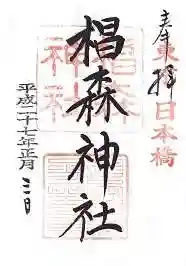 奉拝
東京日本橋
椙森神社
椙森神社
平成二十七年正月三日